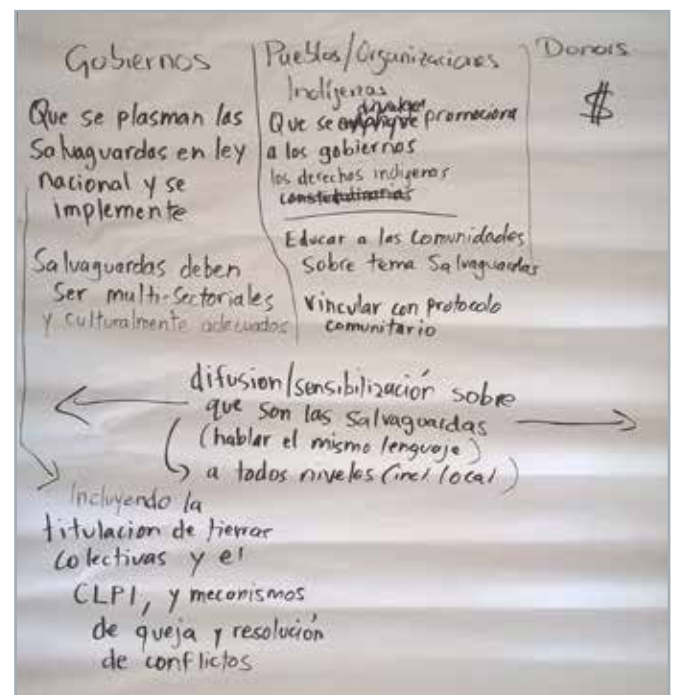 Gobiernos
Que se plasman las
Salvaguardas en ley
nacional y se
implemente
Salvaguardas deben
Ser multi-Sectoriales
y culturalmente adecuados
Pueblos/Organizaciones
Indígenas
divulgar
Que se promociona
a los gobiernos
los derechos indigenas
Educar a las Comunidades
Sobre tema Salvaguardas
Vincular con protocolo
comunitario
Donors
$
difusion/sensibilización sobre
que son las salvaguardas
(hablar el mismo lenguaje)
a todos niveles (incl local)
Incluyendo la
titulacion de tierras
colectivas y el
CLPI, y mecanismos
de queja y resolución
de conflictos